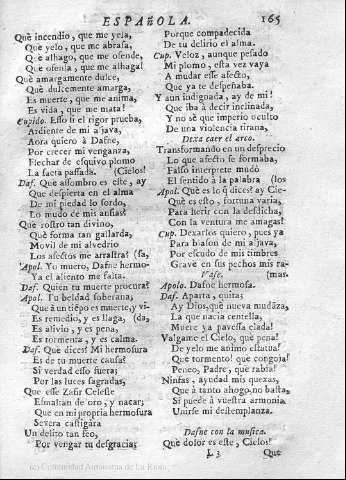 ESPAÑOLA. 165
Què incendio, que me yela,
Què yelo, que me abrasa,
Què alhago, que me ofende,
Que ofensa, que me alhaga!
Què amargamente dulce,
Què dulcemente amarga,
Es muerte, que me anima,
Es vida, que me mata!
Cupido. Esso sì el rigor prueba,
Ardiente de mi aljava,
Aora quiero à Dafne,
Por crecer mi venganza,
Flechar de esquivo plomo
La saeta passada. (Cielos!
Daf. Què assombro es este, ay
Que despierta en el alma
De mi piedad lo sordo,
Lo mudo de mis ansias?
Què rostro tan divino,
Què forma tan gallarda,
Movil de mi alvedrio
Los afectos me arrastra! (sa,
Apol. Yo muero, Dafne hermo-
Ya el aliento me falta.
Daf. Quien tu muerte procura?
Apol. Tu beldad soberana;
Que à un tiepo es muerte, y vi-
Es remedio, y es llaga, (da,
Es alivio, y es pena,
Es tormenta, y es calma.
Daf. Que dices? Mi hermosura
Es de tu muerte causa?
Si verdad esso fuera;
Por las luces sagradas,
Que esse Zafir Celeste
Esmaltan de oro, y nacar;
Que en mi propria hermosura
Severa castigàra
Un delito tan feo,
Por vengar tu desgracia;
Porque compadecida
De tu delirio el alma.
Cup. Veloz, aunque pesado
Mi plomo, esta vez vaya
A mudar esse afecto,
Que ya te despeñaba.
Y aun indignada, ay de mi!
Que iba à decir inclinada,
Y no sè que imperio oculto
De una violencia tirana,
Dexa caer el arco.
Transformando en un desprecio
Lo que afecto se formaba,
Falso interprete mudò
El sentido à la palabra (los
Apol. Què es lo q dices? ay Cie-
Què es esto, fortuna varia,
Para herir con la desdicha,
Con la ventura me amagas!
Cup. Dexarlos quiero, pues ya
Para blason de mi aljava,
Por escudo de mis timbres
Gravè en sus pechos mis ra-
Vase. (mas.
Apolo. Dafne hermosa.
Daf. Aparta, quita;
Ay Dios, què nueva mudãza,
La que nacia centella,
Muere ya pavessa elada!
Valgame el Cielo, què pena!
De yelo me animo estatua!
Què tormento! què congoja!
Peneo, Padre, què rabia!
Ninfas, ayudad mis quexas,
Que à tanto ahogo, no basta,
Si puede à vuestra armonia
Unirse mi destemplanza.
Dafne con la musica.
Què dolor es este, Cielos!
L 3 Que
(c) Comunidad Autónoma de La Rioja